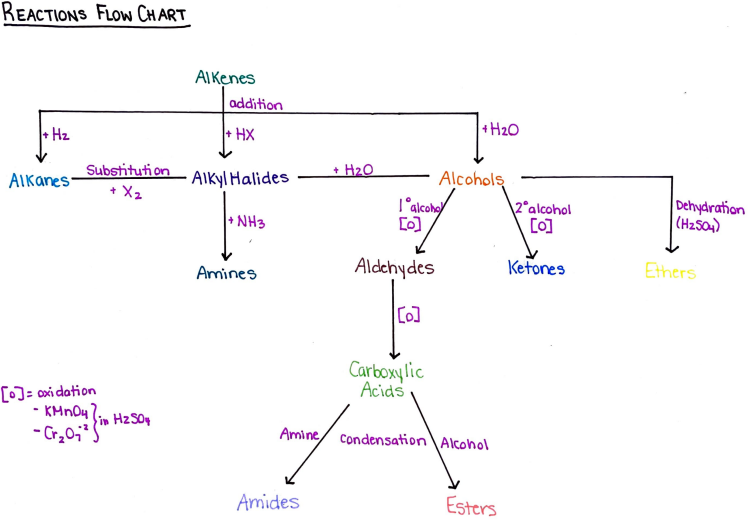 REACTIONS FLOW CHART
Alkenes
addition
+ H2
+ HX
+ H2O
Alkanes
Substitution
+ X2
Alkyl Halides
+ H2O
Alcohols
1° alcohol
[O]
2° alcohol
[O]
Dehydration
(H2SO4)
+ NH3
Amines
Aldehydes
Ketones
Ethers
[O]
Carboxylic
Acids
[O] = oxidation
- KMnO4
- Cr2O7-2
in H2SO4
Amine
Condensation
Alcohol
Amides
Esters